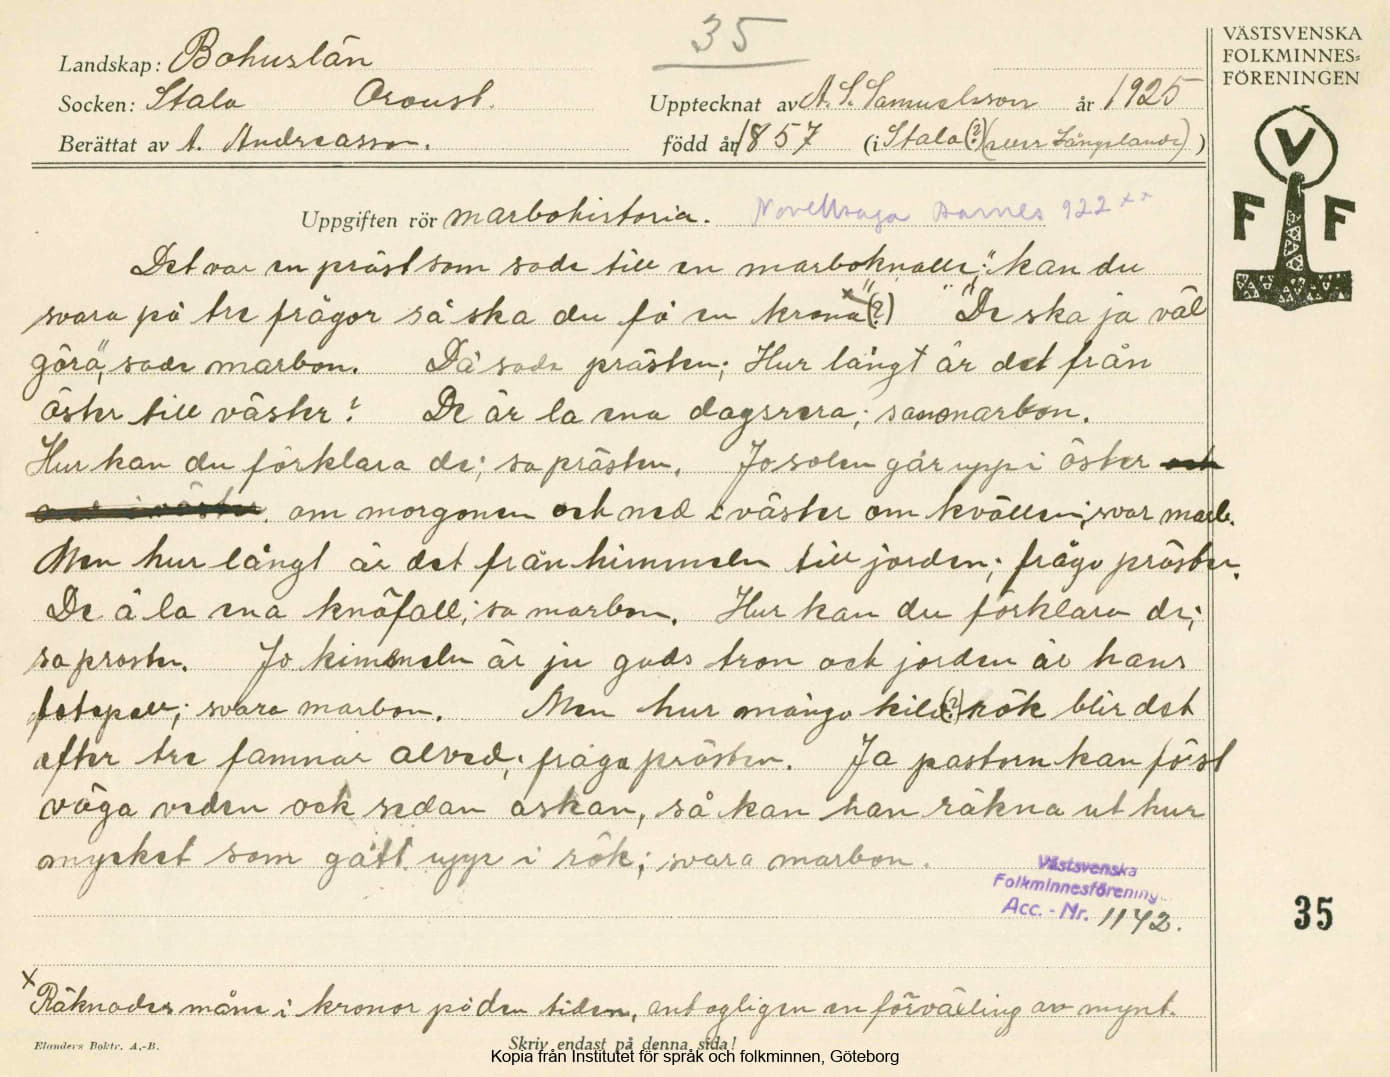 35
VÄSTSVENSKA
FOLKMINNES-
FÖRENINGEN
Landskap: Bohuslän
Socken: Stala Oroust.
Upptecknat av A. S. Samuelsson år 1925
Berättat av A. Andreasson.
född år 1857 (i Stala (?) (eller Långelanda) )
V
F F
Uppgiften rör marbohistoria. Novellsaga Aarnes 922 **
Det var en präst som sade till en marboknalle; "kan du
svara på tre frågor så ska du få en krona" x (?) "De ska ja väl
göra", sade marbon. Då sade prästen; Hur långt är det från
öster till väster? De är la ena dagsresa; sa marbon.
Hur kan du förklara de; sa prästen. Jo solen går upp i öster och
ner i väster. om morgonen och ned i väster om kvällen; svar marb.
Men hur långt är det från himmeln till jorden; frågo prästen.
De ä la ena knäfall; sa marbon. Hur kan du förklara de;
sa prosten. Jo himmeln är ju guds tron och jorden är hans
fotapall; svara marbon. Men hur mångo kilo (?) rök blir det
efter tre famnar alved; fråga prästen. Ja pastorn kan först
väga veden ock sedan askan, så kan han räkna ut hur
mycket som gått upp i rök; svara marbon.
Västsvenska
Folkminnesförening
Acc. - Nr. 1142.
35
x Räknades månne i kronor på den tiden, antagligen en förväxling av mynt.
Elanders Boktr. A.-B.
Skriv endast på denna sida!
Kopia från Institutet för språk och folkminnen, Göteborg